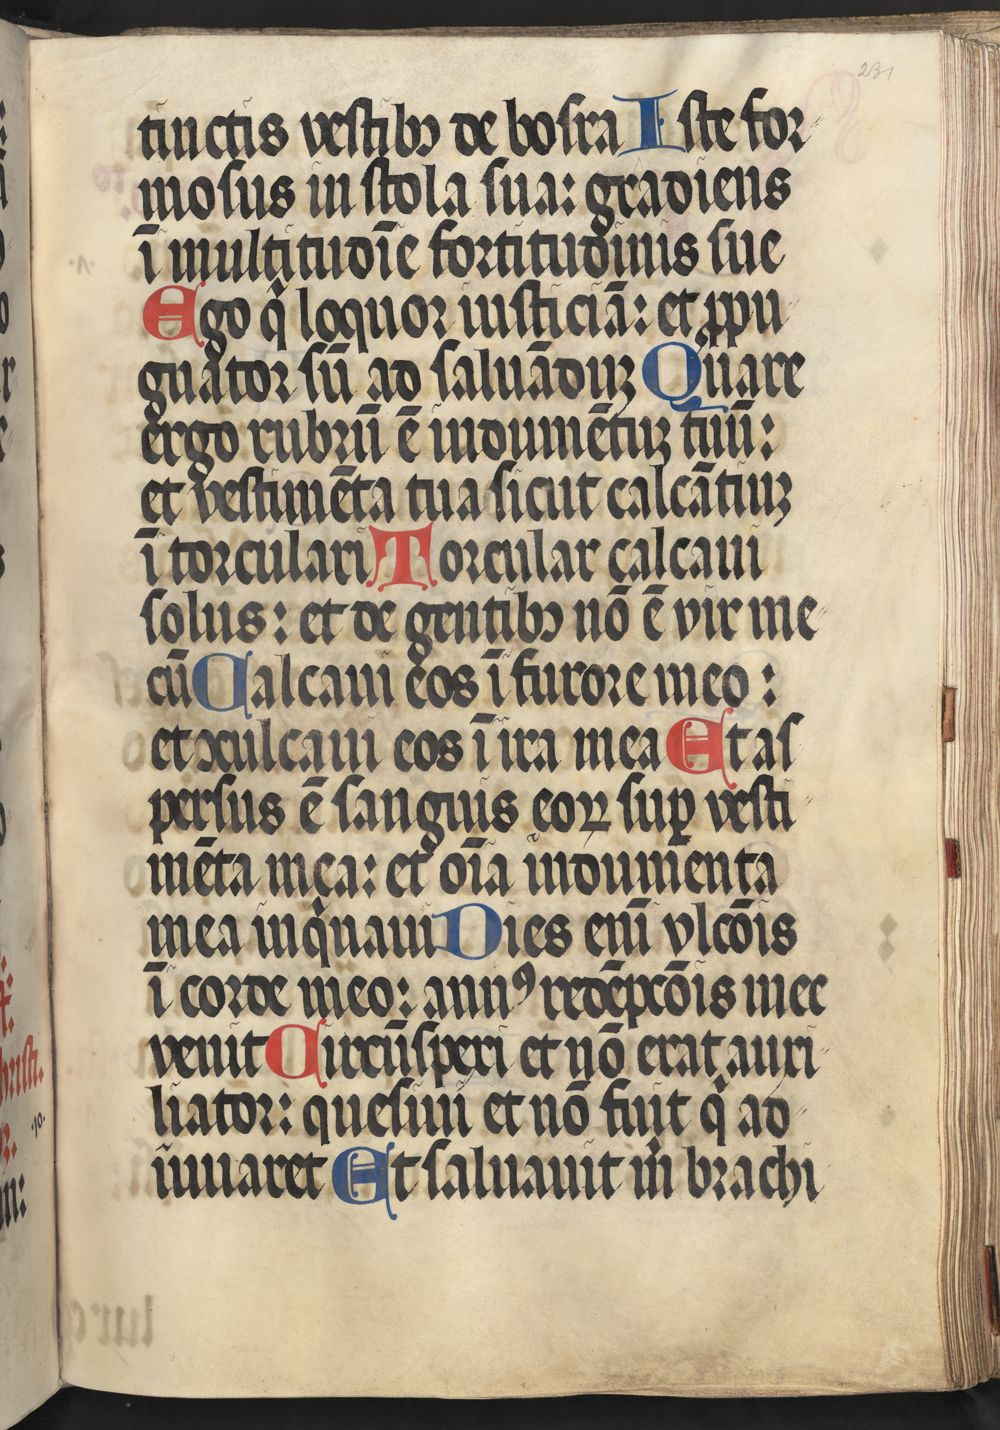 231
tinctis vestibꝫ de bosra Iste for
mosus in stola sua: gradiens
ī multitudīe fortitudinis sue
Ego q̇ loquor iusticiā: et ꝓpu
gnator sū ad saluādūꝫ Quare
ergo rubrū ē indumētuꝫ tuū:
et vestimēta tua sicut calcātiuꝫ
ī torculari Torcular calcaui
solus: et de gentibꝫ nō ē vir me
cū Calcaui eos ī furore meo:
et ↄculcaui eos ī ira mea Et as
persus ē sanguis eoꝝ suꝑ vesti
mēta mea: et oīa indumenta
mea inq̇naui Dies enī vlcōis
ī corde meo: annꝰ redēpcōis mee
venit Circūspexi et nō erat auxi
liator: quesiui et nō fuit q̇ ad
iuuaret Et saluauit m̄ brachi